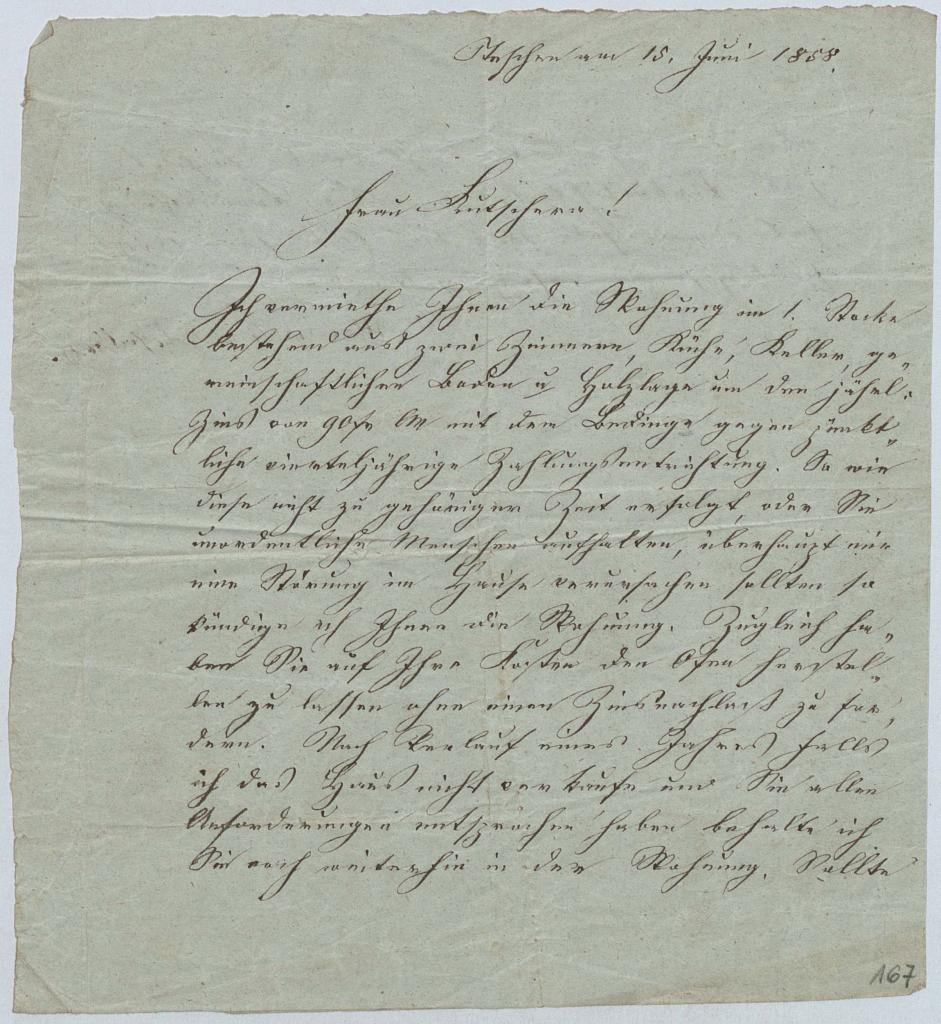 Teschen am 15. Juni 1858.
Frau Kutschera!
Ich vermiethe Ihnen die Wohnung im 1. Stocke
bestehend aus zwei Zimmern, Küche, Keller, ge„
meinschaftlichen Boden u. Holzlage um den jährl.
Zins von 90 fr CM mit dem Bedinge gegen pünkt„
liche vierteljährige Zahlungsentrichtung. So wie
diese nicht zu gehöriger Zeit erfolgt, oder Sie
unordentliche Menschen aufhalten, überhaupt mir
eine Störung im Hause verursachen sollten so
kündige ich Ihnen die Wohnung. Zugleich ha„
ben Sie auf Ihre Kosten den Ofen herstel„
len zu lassen ohne einen Zinsnachlaß zu for„
dern. Nach Verlauf eines Jahres falls
ich das Haus nicht verkaufe und Sie allen
Anforderungen entsprochen haben behalte ich
Sie noch weiterhin in der Wohnung. Sollte
167